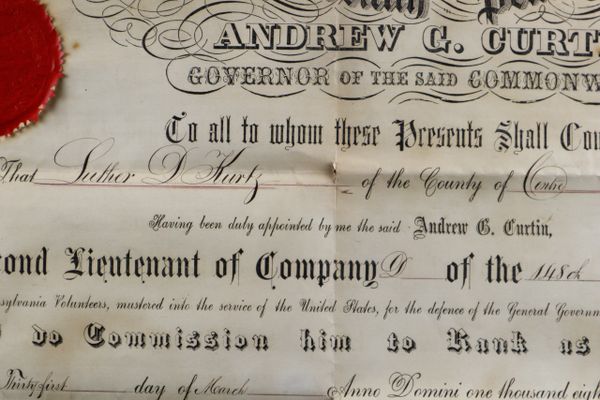 ANDREW G. CURT
GOVERNOR OF THE SAID COMMONW
To all to whom these Presents Shall Co
That Luther D Kurtz of the County of Centre
Having been duly appointed by me the said Andrew G. Curtin,
cond Lieutenant of Company D of the 148th
sylvania Volunteers, mustered into the service of the United States, for the defence of the General Governm
do Commission him to Rank as
Thirty first day of March Anno Domini one thousand eigh